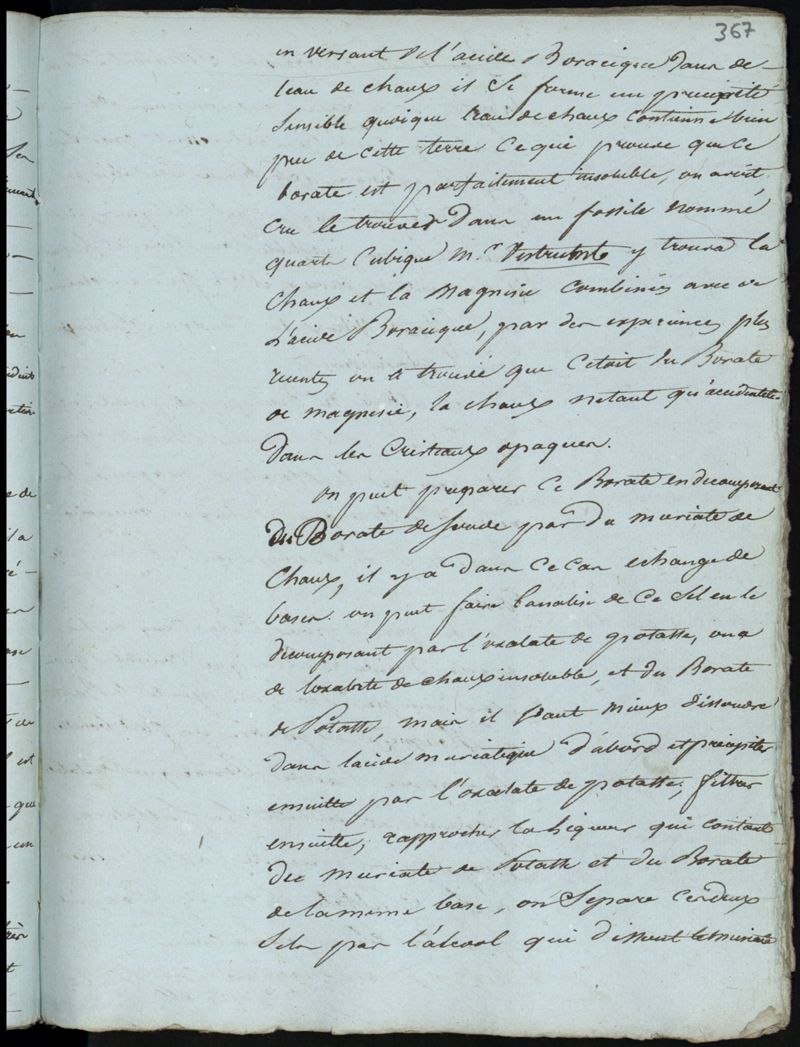 367
en versant de l'acide Boracique dans de
leau de chaux il se forme un precipité
sensible quoique leau de chaux contienne bien
peu de cette terre ce qui prouve que ce
borate est parfaitement insoluble, on avoit
cru le trouver dans un fossile nommé
quartz cubique mr. Vestrumb y trouva la
chaux et la magnesie combinés avec de
l'acide Boracique, par des experiences plus
recentes on a trouvé que cetait du Borate
de magnesie, la chaux netant qu'accidentelle
dans les cristeaux opaques.
on peut preparer ce Borate en decomposant
du Borate de soude par du muriate de
chaux, il y a dans ce cas echange de
bases. on peut faire lanalise de ce sel en le
decomposant par l'oxalate de potasse, on a
de loxalate de chaux insoluble, et du Borate
de Potasse, mais il vaut mieux dissoudre
dans lacide muriatique d'abord et precipiter
ensuitte par l'oxalate de potasse; filtrer
ensuitte, rapprocher la liqueur qui contient
du muriate de Potasse et du Borate
de la meme base, on separe ces deux
sels par l'alcool qui dissout le muriate